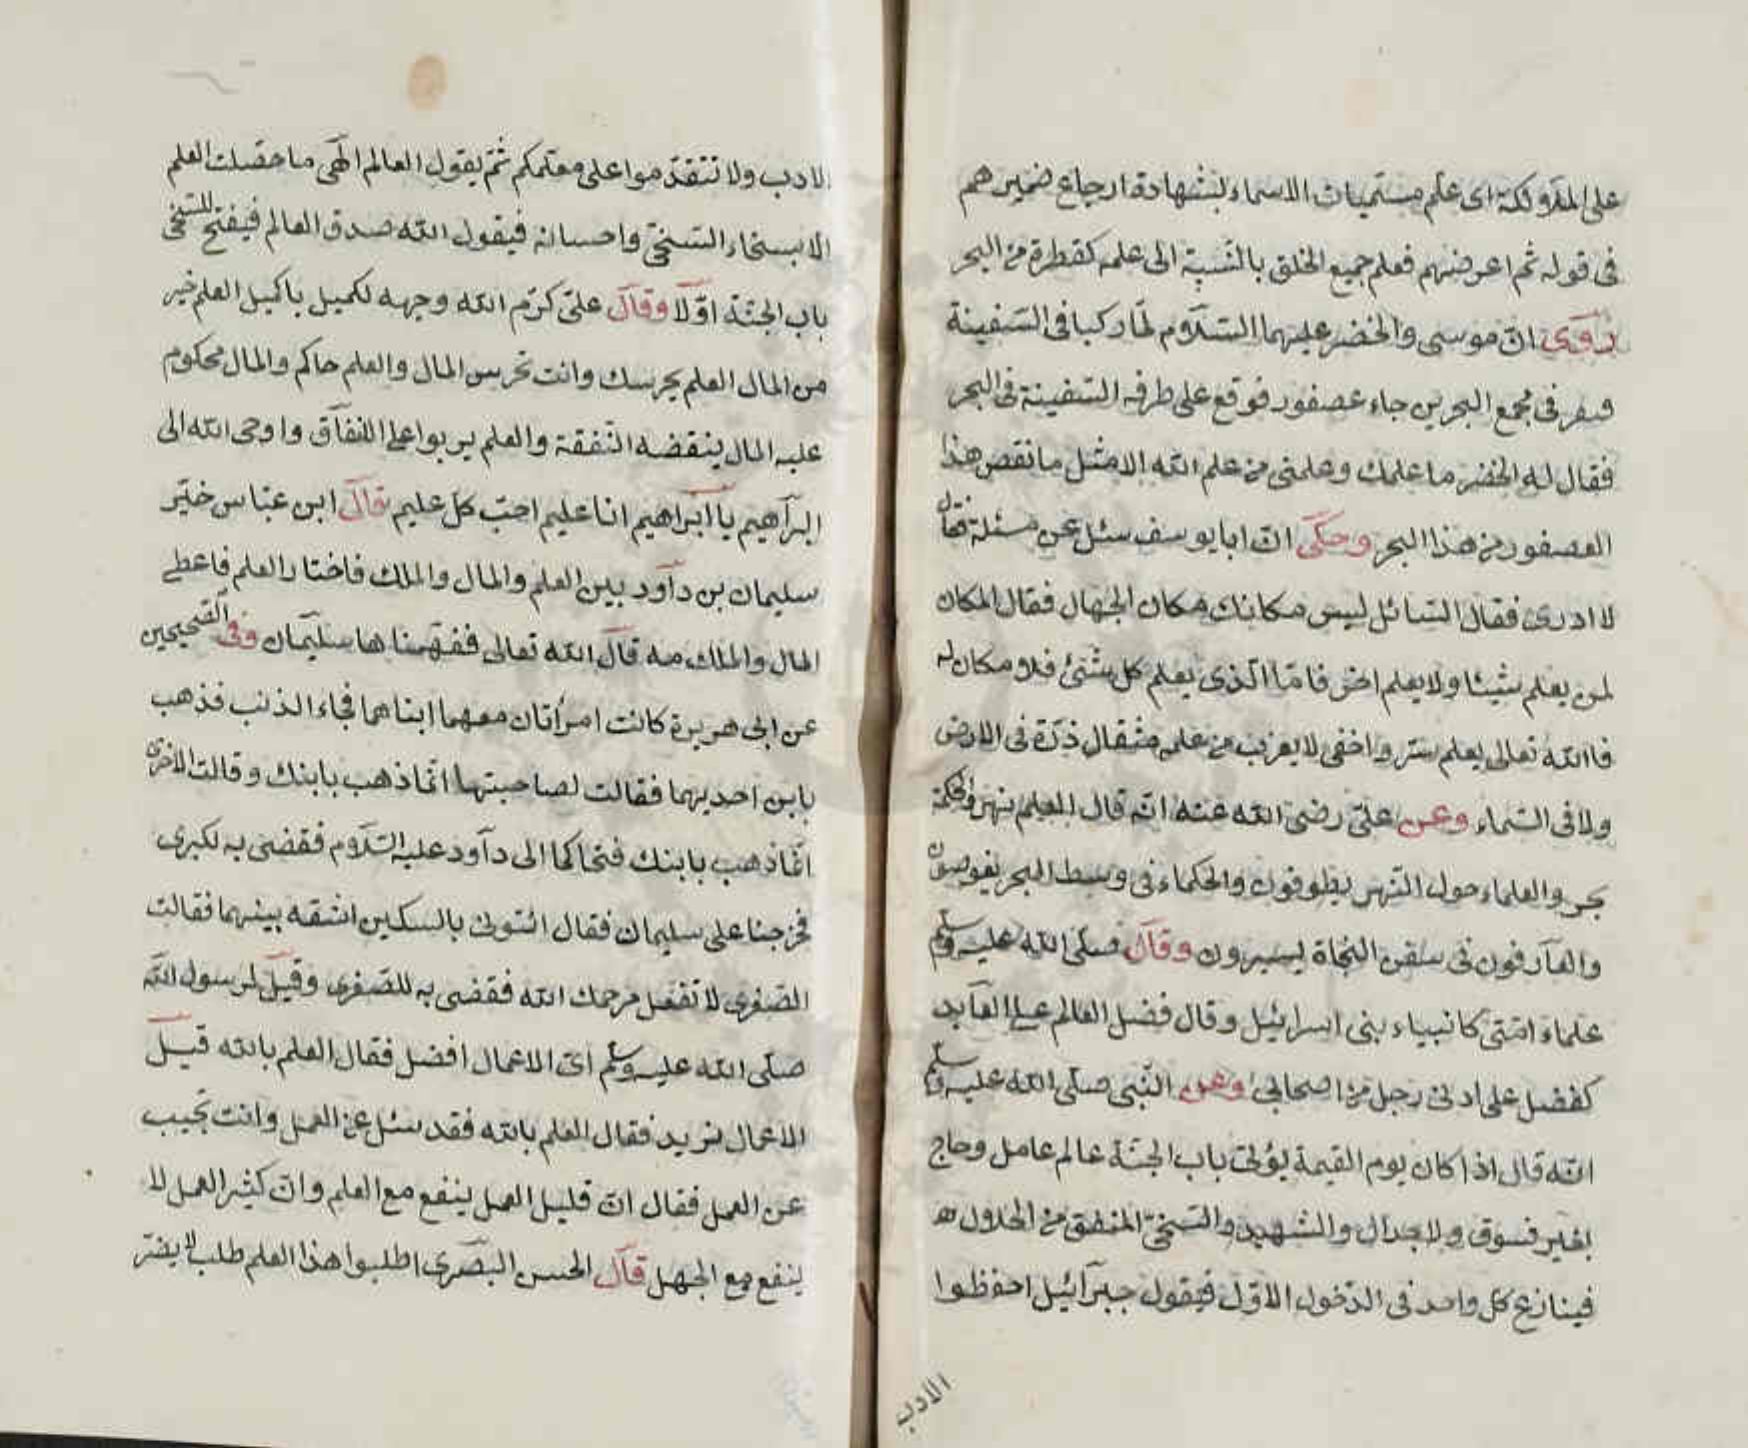 على الملاؤكة اى علم مستميات الاسماء بشهادة ارجاع ضمير هم
فى قوله ثم اعرضهم فعلم جميع الخلق بالنسبة الى علمه كقطرة من البحر
روى ان موسى والخضر عليهما السلاوم لما ركبا فى السفينة
فى مجمع البحرين جاء عصفور فوقع على طرف السفينة فى البحر
فقال له الخضر ما علمك وعلمنى من علم الله الا مثل ما نقص هذا
العصفور من هذا البحر وحكى ان ابا يوسف سئل عن مسئلة فقال
لا ادرى فقال السائل ليس مكانك مكان الجهال فقال المكان
لمن يعلم شيئا ولا يعلم اخر فاما الذى يعلم كل شئ فلاو مكان له
فا الله تعالى يعلم سر و اخفى لا يعزب من علمه مثقال ذرة فى الارض
ولا فى السماء وعن على رضى الله عنه انه قال العلم نهر والحكمة
بحر والعلماء حول النهر يطوفون والحكماء فى وسط البحر يغوصون
والعارفون فى سفن النجاة يسيرون وقال صلى الله عليه وسلم
علماء امتى كانبياء بنى اسرائيل وقال فضل العالم على العابد
كفضل على ادنى رجل من اصحابى وعن النبى صلى الله عليه وسلم
انه قال اذا كان يوم القيمة يؤتى باب الجنة عالم عامل وحاج
بغير فسوق ولا جدال والشهيد والسخى المنفق من الحلاول
فينازع كل واحد فى الدخول الاول فيقول جبرائيل احفظوا
الادب
الادب ولا تتقدموا على معلمكم ثم يقول العالم الهى ما حصلت العلم
الا بسخاء السخى واحسانه فيقول الله صدق العالم فيفتح للسخى
باب الجنة اولا وقال على كرم الله وجهه لكميل ياكميل العلم خير
من المال العلم يحرسك وانت تحرس المال والعلم حاكم والمال محكوم
عليه المال ينقضه النفقة والعلم يربوا على النفاق و اوحى الله الى
ابرآهيم يا ابرآهيم انا عليم احب كل عليم قال ابن عباس خير
سليمان بن دآود بين العلم والمال والملك فاختار العلم فاعطى
المال والملك معه قال الله تعالى ففهمنا ها سليمان وفى الصحيحين
عن ابى هريرة كانت امرأتان معهما ابناهما فجاء الذئب فذهب
بابن احديهما فقالت لصاحبتها انما ذهب بابنك و قالت الاخرى
انما ذهب بابنك فتحاكما الى دآود عليه السلاوم فقضى به لكبرى
فخرجنا على سليمان فقال ائتونى بالسكين اشقه بينهما فقالت
الصغرى لا تفعل يرحمك الله فقضى به للصغرى وقيل لرسول الله
صلى الله عليه وسلم اى الاعمال افضل فقال العلم بالله قيل
الاعمال نريد فقال العلم بالله فقد سئل عن العمل وانت تجيب
عن العمل فقال ان قليل العمل ينفع مع العلم وان كثير العمل لا
ينفع مع الجهل قال الحسن البصرى اطلبوا هذا العلم طلب لا يضر